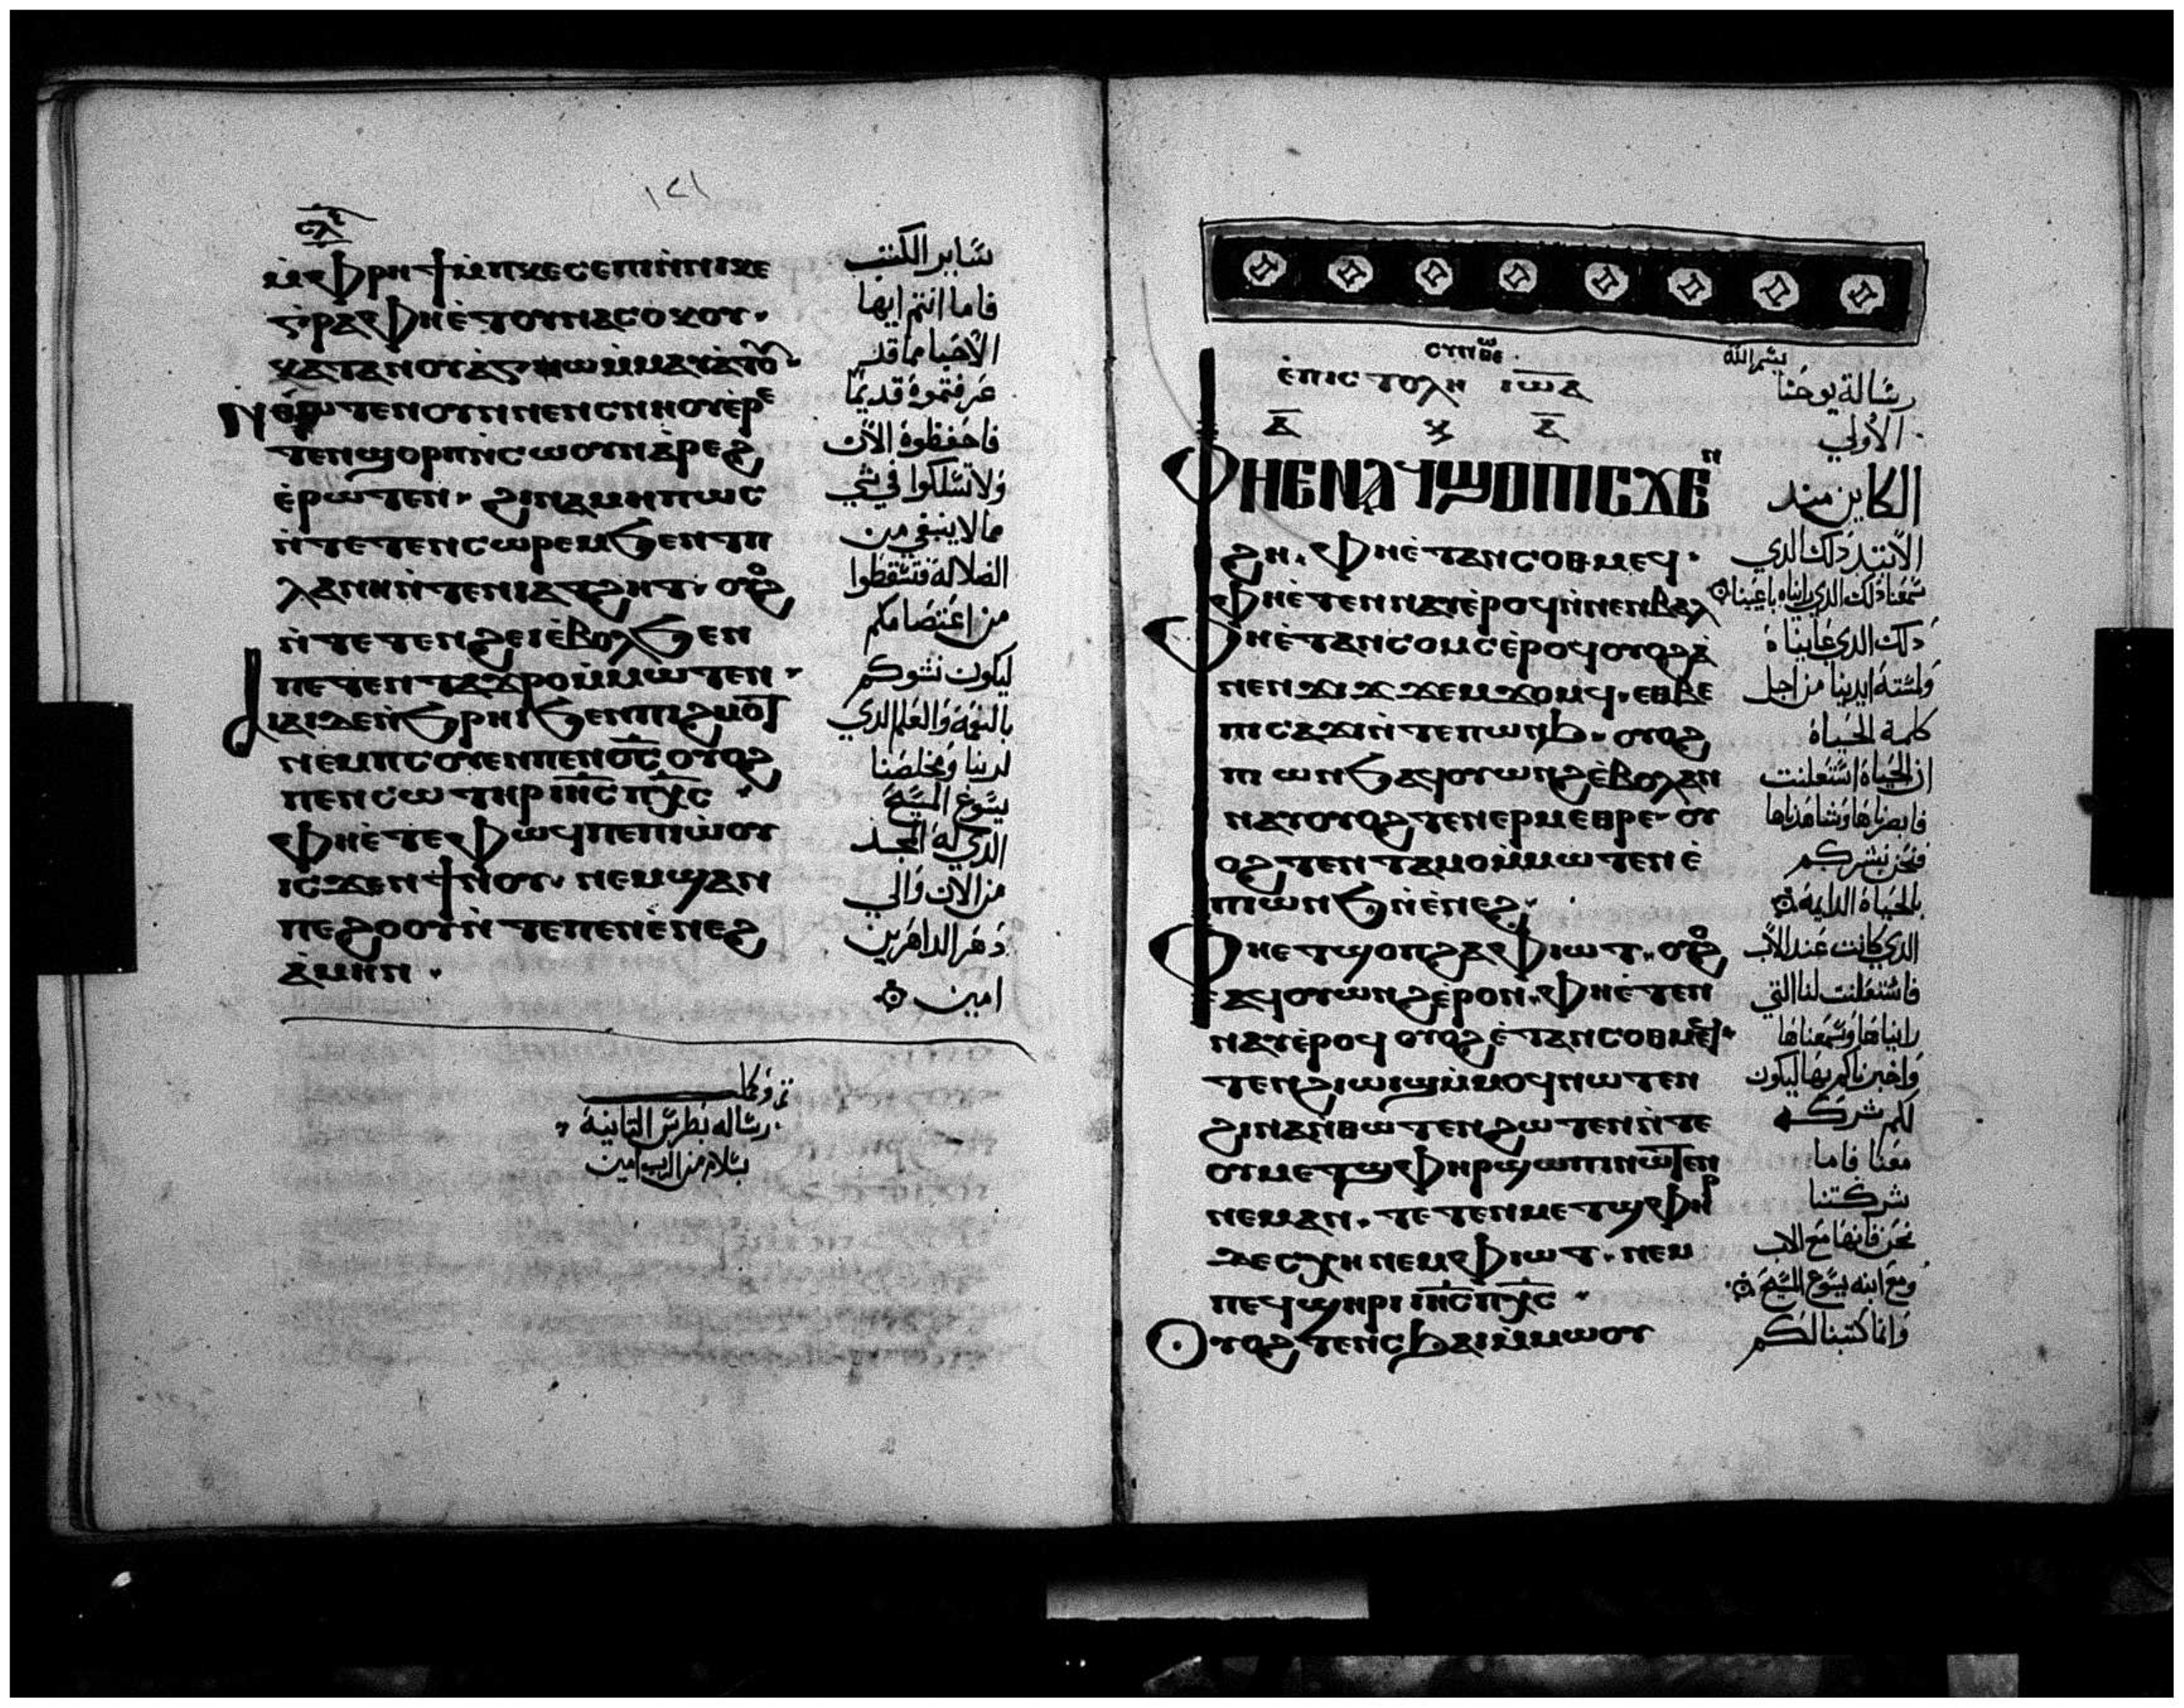 ١٢١
ⲙ̀ⲫⲣⲏϯ ⲙ̀ⲡⲕⲉⲥⲉⲡⲓ ⲛ̀ⲛⲓⲕⲉ
ⲅ̀ⲣⲁⲫⲏ ⲉ̀ⲧⲟⲩⲛⲁⲥⲟϫⲟⲩ.
ⲛⲑⲱⲧⲉⲛ ⲟⲩⲛ ⲛⲉⲛⲥⲛⲏⲟⲩ ⲉⲣⲉ
ⲧⲉⲛϣⲟⲣⲡ ⲛ̀ⲥⲱⲟⲩⲛ ⲁ̀ⲣⲉϩ
ⲉ̀ⲣⲱⲧⲉⲛ. ϩⲓⲛⲁ ⲙⲏⲡⲱⲥ
ⲛ̀ⲧⲉⲧⲉⲛⲥⲱⲣⲉⲙ ϧⲉⲛ ⲧⲡ
ⲗⲁⲛⲏ ⲛ̀ⲧⲉⲛⲓⲁⲧϩⲏⲧ. ⲟⲩⲟϩ
ⲛ̀ⲧⲉⲧⲉⲛϩⲉⲓ ⲉ̀ⲃⲟⲗ ϧⲉⲛ
ⲡⲉⲧⲉⲛⲧⲁϫⲣⲟ ⲙ̀ⲙⲱⲧⲉⲛ.
ⲁⲓⲁⲓ ⲇⲉ ⲛ̀ϧⲣⲏⲓ ϧⲉⲛ ⲡⲓϩⲙⲟⲧ
ⲛⲉⲙ ⲡⲥⲟⲩⲉⲛ ⲡⲉⲛⲟ̅ⲥ̅ ⲟⲩⲟϩ
ⲡⲉⲛⲥⲱⲧⲏⲣ ⲓⲏ̅ⲥ̅ ⲡⲭ̅ⲥ̅
ⲫⲏ ⲉ̀ⲧⲉ ⲫⲱϥ ⲡⲉ ⲡⲓⲱ̀ⲟⲩ
ⲓⲥϫⲉⲛ ϯⲛⲟⲩ. ⲛⲉⲙ ϣⲁ ⲛ
ⲡⲉϩⲟⲟⲩ ⲛ̀ⲧⲉ ⲡⲉⲛⲉ̀ⲛⲉϩ
ⲁ̀ⲙⲏⲛ.
ساير الكتب
فاما انتم ايها
الاحبا مما قد
عرفتموه قديمًا
فاحفظوه الان
ولا تسلكوا في شي
مالا ينبغي من
الضلالة فتسقطوا
من اعتصامكم
بالنعمة والعلم الدي
لربنا ومخلصنا
يسوع المسيح
الدي له المجد
من الان والي
دهر الداهرين
امين
رساله بطرس التانية
بسلام من الرب امين
ⲉ̀ⲡⲓⲥⲧⲟⲗⲏ ⲓⲱ̅ⲁ̅
ⲁ̅ ⲕ ⲁ̅
ⲫⲏ ⲉⲛⲁϥϣⲟⲡ ⲓⲥϫⲉⲛ
ϩⲏ. ⲫⲏ ⲉ̀ⲧⲁⲛⲥⲟⲑⲙⲉϥ.
ⲫⲏ ⲉ̀ⲧⲉⲛⲛⲁⲩ ⲉ̀ⲣⲟϥ ⲛ̀ⲛⲉⲛⲃⲁⲗ
ⲫⲏ ⲉ̀ⲧⲁⲛⲥⲟⲙⲥ ⲉ̀ⲣⲟϥ ⲟⲩⲟϩ ⲁ̀
ⲛⲉⲛϫⲓϫ ϫⲉⲙϫⲱⲙϥ. ⲉⲑⲃⲉ
ⲡⲓⲥⲁϫⲓ ⲛ̀ⲧⲉ ⲡⲱⲛϧ. ⲟⲩⲟϩ
ⲡⲓⲱⲛϧ ⲁϥⲟⲩⲱⲛϩ ⲉ̀ⲃⲟⲗ ⲁⲛ
ⲛⲁⲩ ⲟⲩⲟϩ ⲧⲉⲛⲉⲣⲙⲉⲑⲣⲉ. ⲟⲩ
ⲟϩ ⲧⲉⲛⲧⲁⲙⲟ ⲙ̀ⲙⲱⲧⲉⲛ ⲉ̀
ⲡⲓⲱⲛϧ ⲛ̀ⲉ̀ⲛⲉϩ.
ⲫⲏ ⲉⲧϣⲟⲡ ϩⲁ ⲫⲓⲱⲧ. ⲟⲩⲟϩ
ⲁϥⲟⲩⲱⲛϩ ⲉ̀ⲣⲟⲛ. ⲫⲏ ⲉ̀ⲧⲉⲛ
ⲛⲁⲩ ⲉ̀ⲣⲟϥ ⲟⲩⲟϩ ⲉ̀ⲧⲁⲛⲥⲟⲑⲙⲉϥ.
ⲧⲉⲛϩⲓⲱⲓϣ ⲙ̀ⲙⲟϥ ⲛⲱⲧⲉⲛ
ϩⲓⲛⲁ ⲛ̀ⲑⲱⲧⲉⲛ ϩⲱⲧⲉⲛ ⲛ̀ⲧⲉ
ⲟⲩⲙⲉⲧϣⲫⲏⲣ ϣⲱⲡⲓ ⲛⲱⲧⲉⲛ
ⲛⲉⲙⲁⲛ. ⲧⲉⲧⲉⲛⲙⲉⲧϣⲫⲏⲣ
ⲇⲉ ⲥⲭⲏ ⲛⲉⲙ ⲫⲓⲱⲧ. ⲛⲉⲙ
ⲡⲉϥϣⲏⲣⲓ ⲓⲏ̅ⲥ̅ ⲡⲭ̅ⲥ̅
ⲟⲩⲟϩ ⲧⲉⲛⲥϧⲁⲓ ⲙ̀ⲙⲱⲟⲩ
بسم الله
رسالة يوحنا
الاولي
الكاين منذ
الابتدا دلك الدي
سمعنا دلك الدي رايناه باعيننا
دلك الدي عايناه
ولمسته ايدينا من اجل
كلمة الحياة
ان الحياة استعلنت
فابصرناها وشاهدناها
فنحن نبشركم
بالحياة الدايمة
الدي كانت عند الاب
فاستعلنت لنا التي
رايناها وسمعناها
واخبرناكم بها ليكون
لكم شركة
معنا فاما
شركتنا
نحن فانها مع الاب
ومع ابنه يسوع المسيح
وانما كتبنا لكم